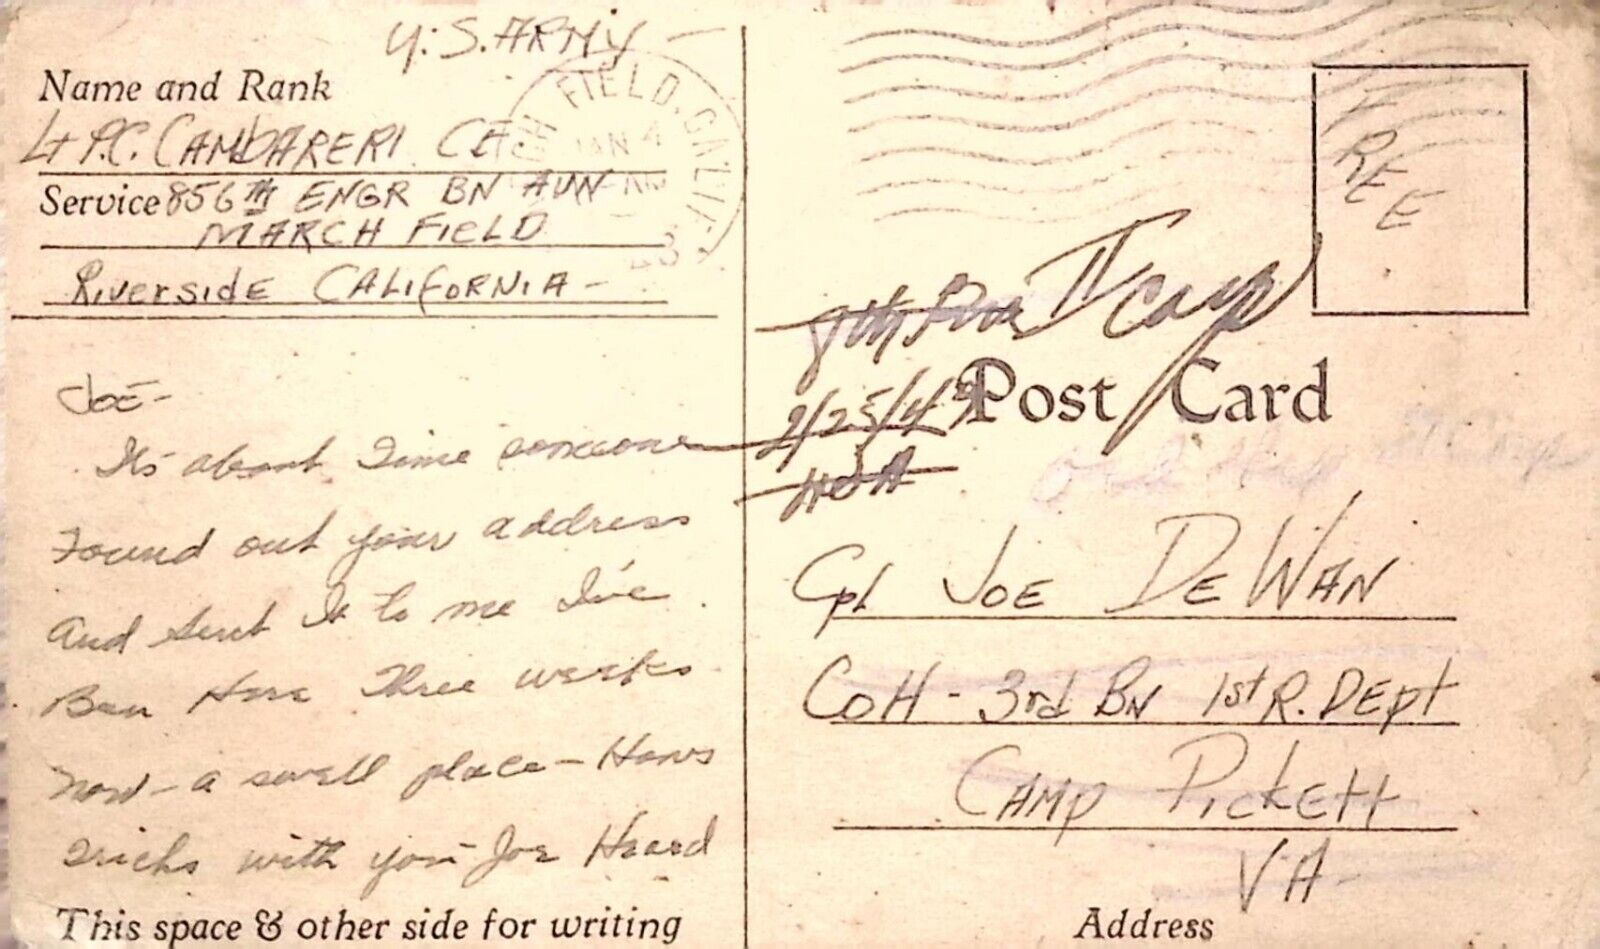 U.S. ARMY -
Name and Rank
Lt P.C. CAMBARERI CE.
Service 856TH ENGR BN AVN
MARCH FIELD
RIVERSIDE CALIFORNIA -
FIELD, CALIF.
JAN 4
FREE
II Corp
2/25/43
Post Card
Joe -
It's about time someone
Found out your address
And sent it to me I've
Been Here Three weeks
now - a swell place - Hows
tricks with you Joe Heard
This space & other side for writing
Cpl JOE DE WAN
CO H - 3rd BN 1st R. DEPT
CAMP PICKETT
VA -
Address